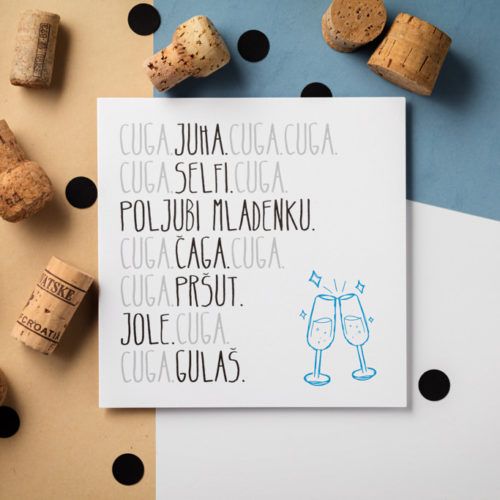 CUGA.JUHA.CUGA.CUGA.
CUGA.SELFI.CUGA.
POLJUBI MLADENKU.
CUGA.ČAGA.CUGA.
CUGA.PRŠUT.
JOLE.CUGA.
CUGA.GULAŠ.
CROATIA